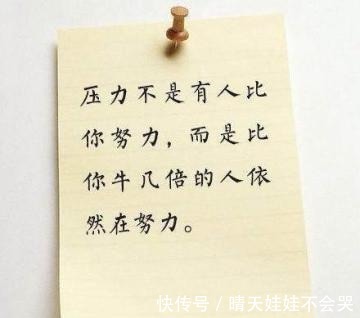 压力不是有人比
你努力，而是比
你牛几倍的人依
然在努力。
快传号/晴天娃娃不会哭